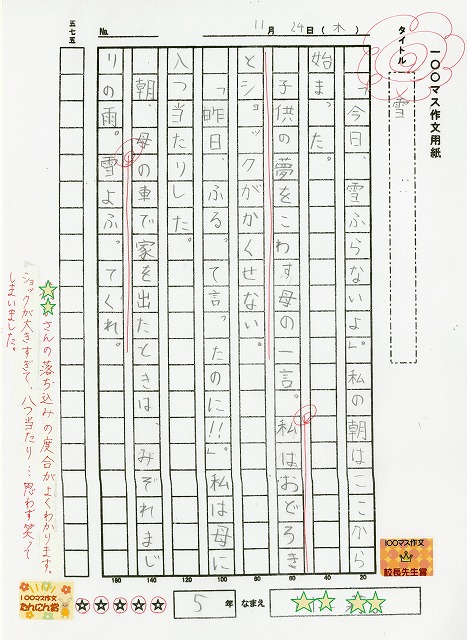 一〇〇マス作文用紙
タイトル
雪
11月24日(木)
No.
五七五
「今日、雪ふらないよ」。私の朝はここから
始まった。
子供の夢をこわす母の一言。私はおどろき
とショックがかくせない。
「昨日、ふるって言ったのに!!」。私は母に
八つ当たりした。
朝、母の車で家を出たときは、みぞれまじ
りの雨。雪よふってくれ。
さんの落ち込みの度合がよくわかります。
ショックが大きすぎて、八つ当たり…思わず笑って
しまいました。
180
160
140
120
100
80
60
40
20
100マス作文
校長先生賞
100マス作文
たんにん賞
5年 なまえ